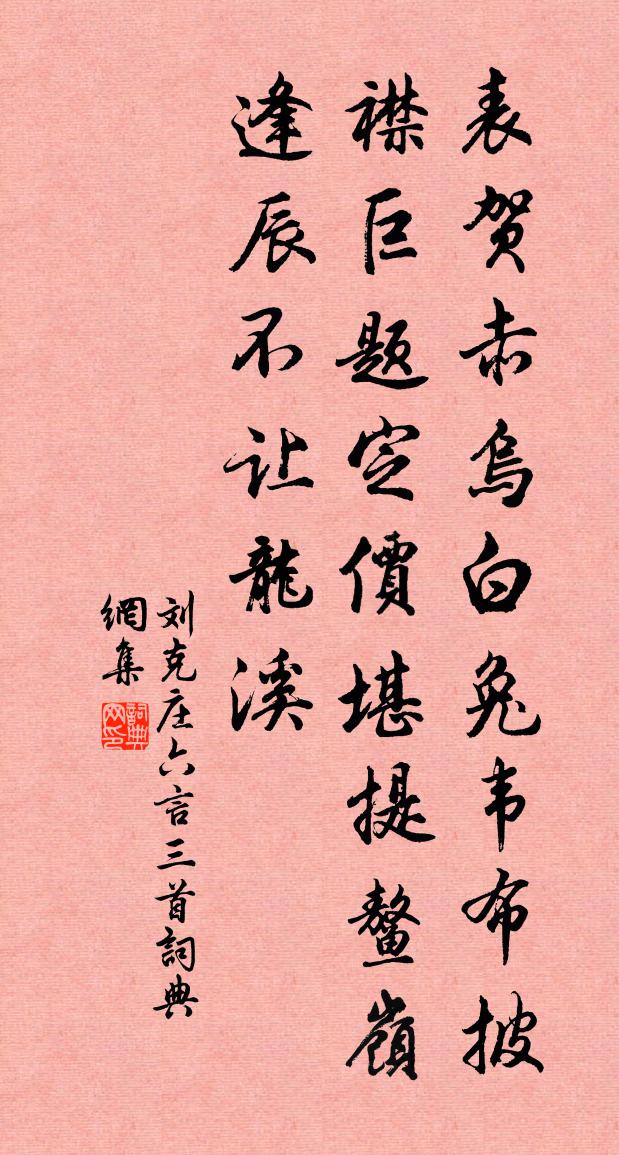 表贺赤乌白兔韦布披
襟巨题定價堪提鳌嶺
逢辰不让龍溪
刘克庄六言三首詞典
網集
詞典网印